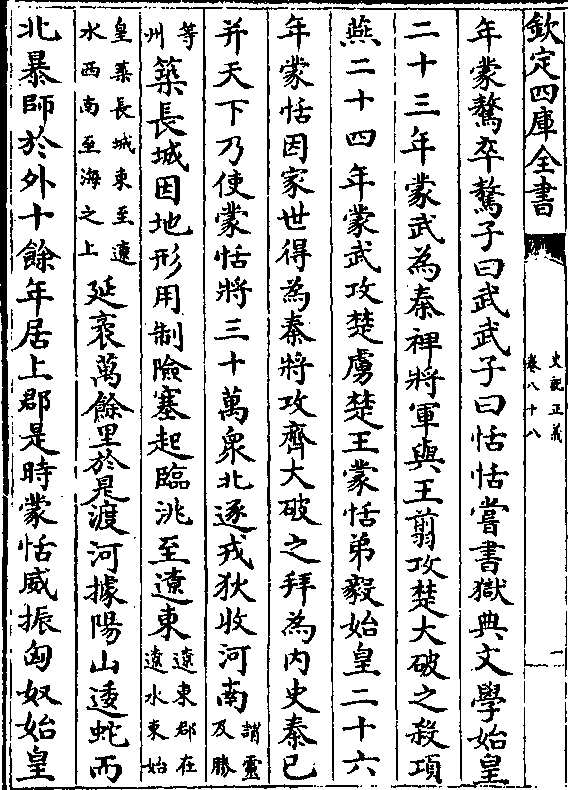 欽定四庫全書
史記正義
卷八十八
一
年蒙驁卒驁子曰武武子曰恬恬嘗書獄典文學始皇
二十三年蒙武為秦裨將軍與王翦攻楚大破之殺項
燕二十四年蒙武攻楚虜楚王蒙恬弟毅始皇二十六
年蒙恬因家世得為秦將攻齊大破之拜為內史秦已
并天下乃使蒙恬將三十萬衆北逐戎狄收河南謂靈及勝
等州築長城因地形用制險塞起臨洮至遼東遼東郡在遼水東始
皇築長城東至遼水西南至海之上延袤萬餘里於是渡河據陽山逶蛇而
北暴師於外十餘年居上郡是時蒙恬威振匈奴始皇